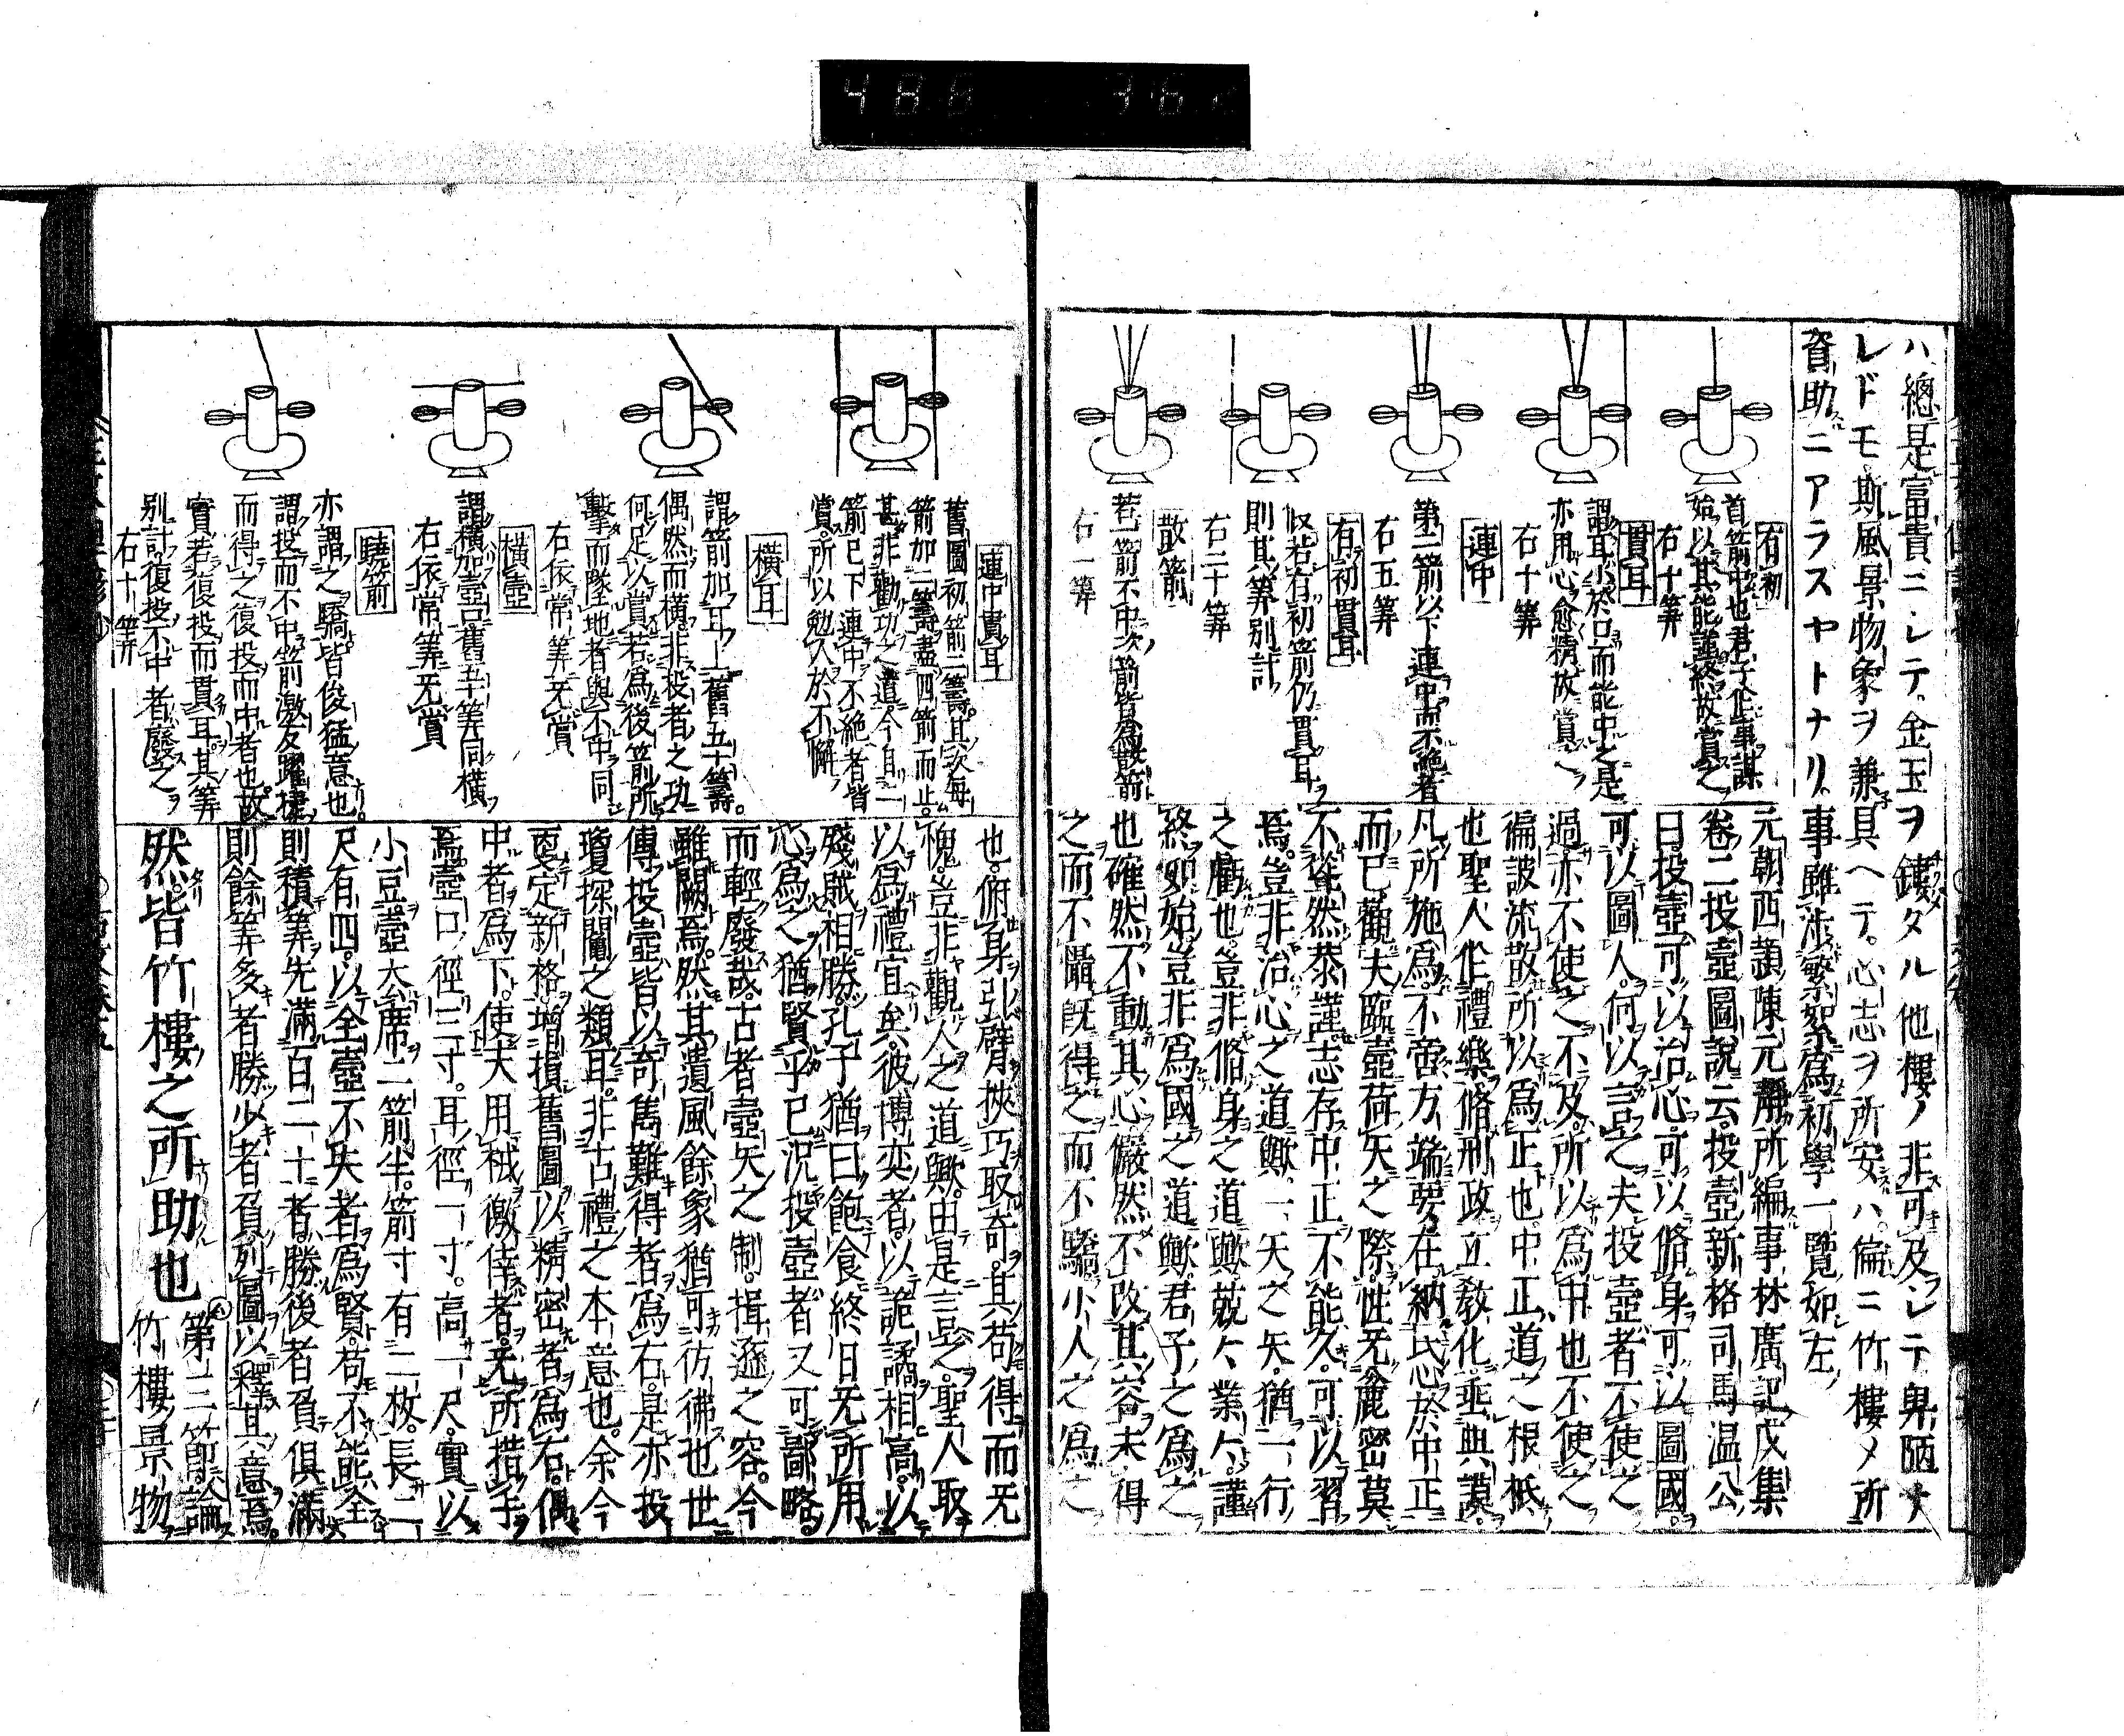 ハ總是富貴ニシテ。金玉ヲ鏤タル他樓ノ非可及シテ卑陋ナ
レドモ。斯風景物象ヲ兼具ヘテ。心志ヲ所安ハ。偏ニ竹樓ノ所
資助ニアラズヤトナリ。事雖渉繁如爲初學一覽如左
有初
首箭中也君子作事謀
始以其能謹終故賞之
右十筭
貫耳
謂耳小於口而能中之是
亦用心愈精故賞之
右十筭
連中
第二箭以下連中而不絶者
右五筭
有初貫耳
若有初箭仍貫耳
則其筭別計
右二十筭
散箭
若一箭不中次箭皆爲散箭
右一筭
元朝西頴陳元靜所編事林廣記戊集
卷二投壺圖説云投壺新格司馬温公
曰投壺可以治心可以脩身可以圖國
可以圖人何以言之夫投壺者不使之
過亦不使之不及所以爲中也不使之
偏詖流散所以爲正也中正道之根柢
也聖人作禮樂脩刑政立教化垂典謨
凡所施爲不啻万端要在納民心於中正
而已觀夫臨壺荷矢之際性无麁密莫
不聳然恭謹志存中正不能久可以習
焉豈非治心之道歟一矢之失猶一行
之虧也豈非脩身之道歟兢々業々謹
終如始豈非爲國之道歟君子之爲之
也確然不動其心儼然不改其容未得
之而不懾既得之而不驕小人之爲之
連中貫耳
舊圖初箭二籌其次毎
箭加二籌盡四箭而止
甚非勸功之道今自二
箭已下連中不絶者皆
賞所以勉人於不懈
橫耳
謂箭加耳上舊五十籌
偶然而橫非投者之功
何足以賞若爲後箭所
擊而墜地者與不中同
右依常筭无賞
橫壺
謂橫加壺口舊五十筭同橫
右依常筭无賞
驍箭
亦謂之驕皆俊猛意也
謂投而不中箭激反躍捷
而得之復投而中者也故
賞若復投而貫耳其筭
別計復投不中者廢之
右十筭
也俯身引臂挾巧取奇其苟得而无
愧豈非觀人之道歟由是言之聖人取
以爲禮宜矣彼博奕者以詭譎相高以
殘賊相勝孔子猶曰飽食終日无所用
心爲之猶賢乎已況投壺者又可鄙略
而輕廢哉古者壺矢之制揖遜之容今
雖闕焉然其遺風餘象猶可彷彿也世
傳投壺皆以奇雋難得者爲右是亦投
瓊探鬮之類耳非古禮之本意也余今
更定新格增損舊圖以精密者爲右偶
中者爲下使夫用械徼倖者无所措手
焉壺口徑三寸耳徑一寸高一尺實以
小豆壺去席二箭半箭寸有二枚長二
尺有四以全壺不失者爲賢苟不能全
則積筭先滿百二十者勝後者負俱滿
則餘筭多者勝少者負列圖以釋其意焉
然皆竹樓之所助也
第三節論
竹樓景物